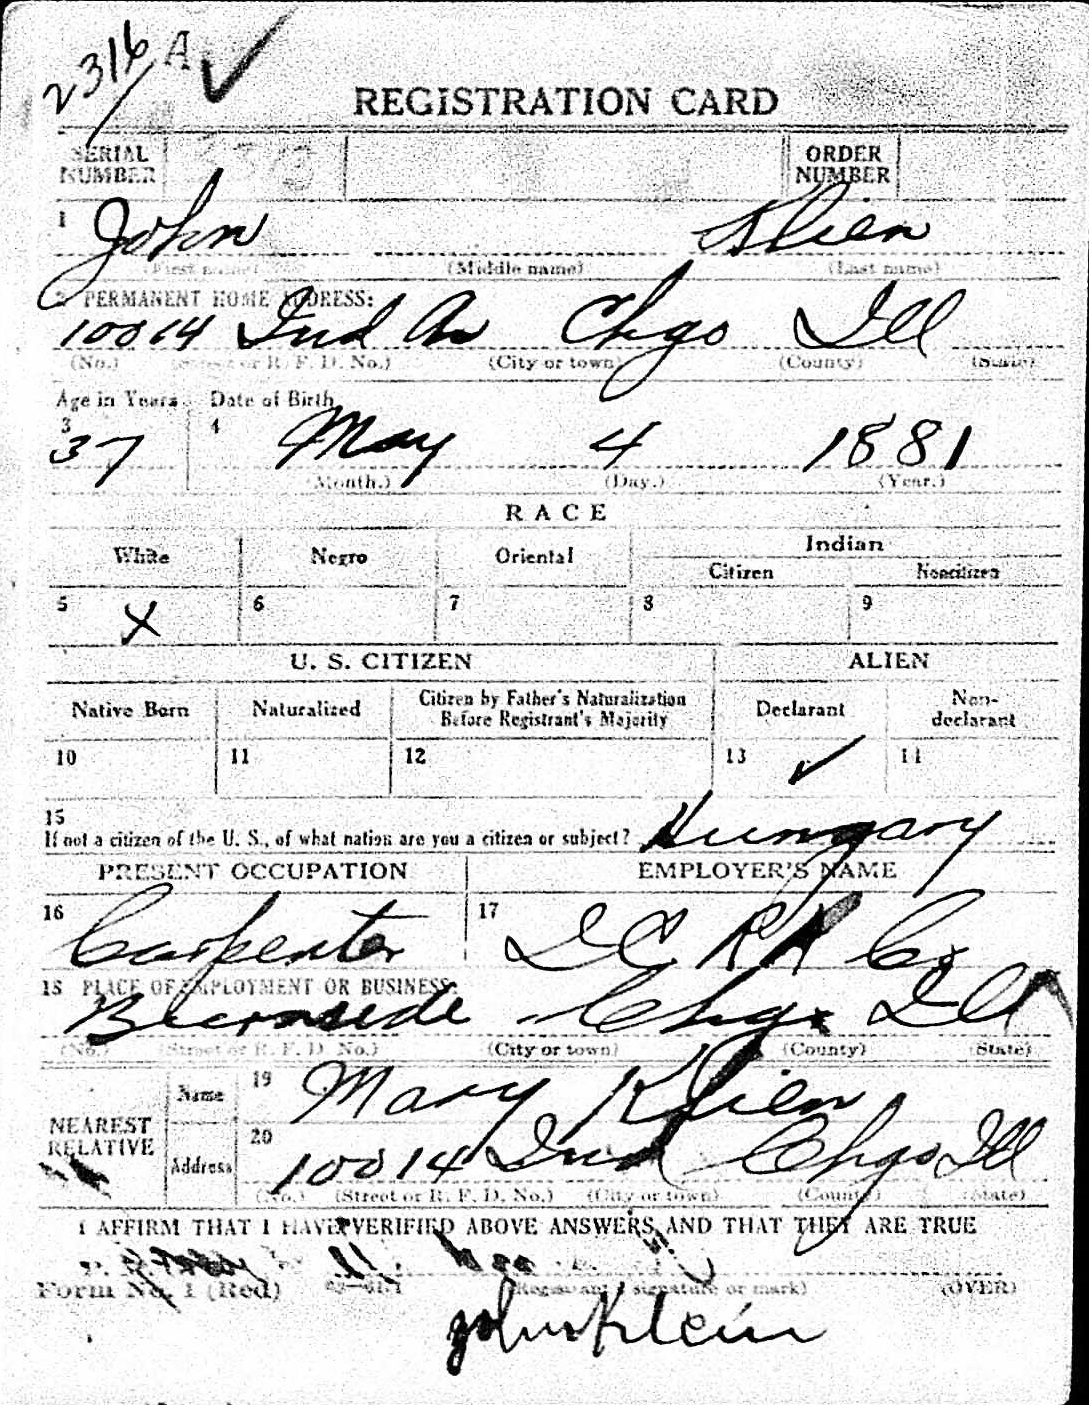 2316 A
REGISTRATION CARD
SERIAL NUMBER ORDER NUMBER
1 John Klien
(First name) (Middle name) (Last name)
2 PERMANENT HOME ADDRESS:
10014 Ind Av Chgo Ill
(No.) (Street or R. F. D. No.) (City or town) (County) (State)
Age in Years Date of Birth
3 37 4 May 4 1881
(Month.) (Day.) (Year.)
RACE
White Negro Oriental Indian
Citizen Noncitizen
5 X 6 7 8 9
U. S. CITIZEN ALIEN
Native Born Naturalized Citizen by Father's Naturalization Before Registrant's Majority Declarant Non-declarant
10 11 12 13 ✓ 14
15
If not a citizen of the U. S., of what nation are you a citizen or subject? Hungary
PRESENT OCCUPATION EMPLOYER'S NAME
16 Carpenter 17 I C R R Co
18 PLACE OF EMPLOYMENT OR BUSINESS:
Burnside - Chgo Ill
(No.) (Street or R. F. D. No.) (City or town) (County) (State)
NEAREST RELATIVE
Name 19 Mary Klien
Address 20 10014 Ind Chgo Ill
(No.) (Street or R. F. D. No.) (City or town) (County) (State)
I AFFIRM THAT I HAVE VERIFIED ABOVE ANSWERS AND THAT THEY ARE TRUE
Form No. 1 (Red) (Registrant's signature or mark) (OVER)
John Klein